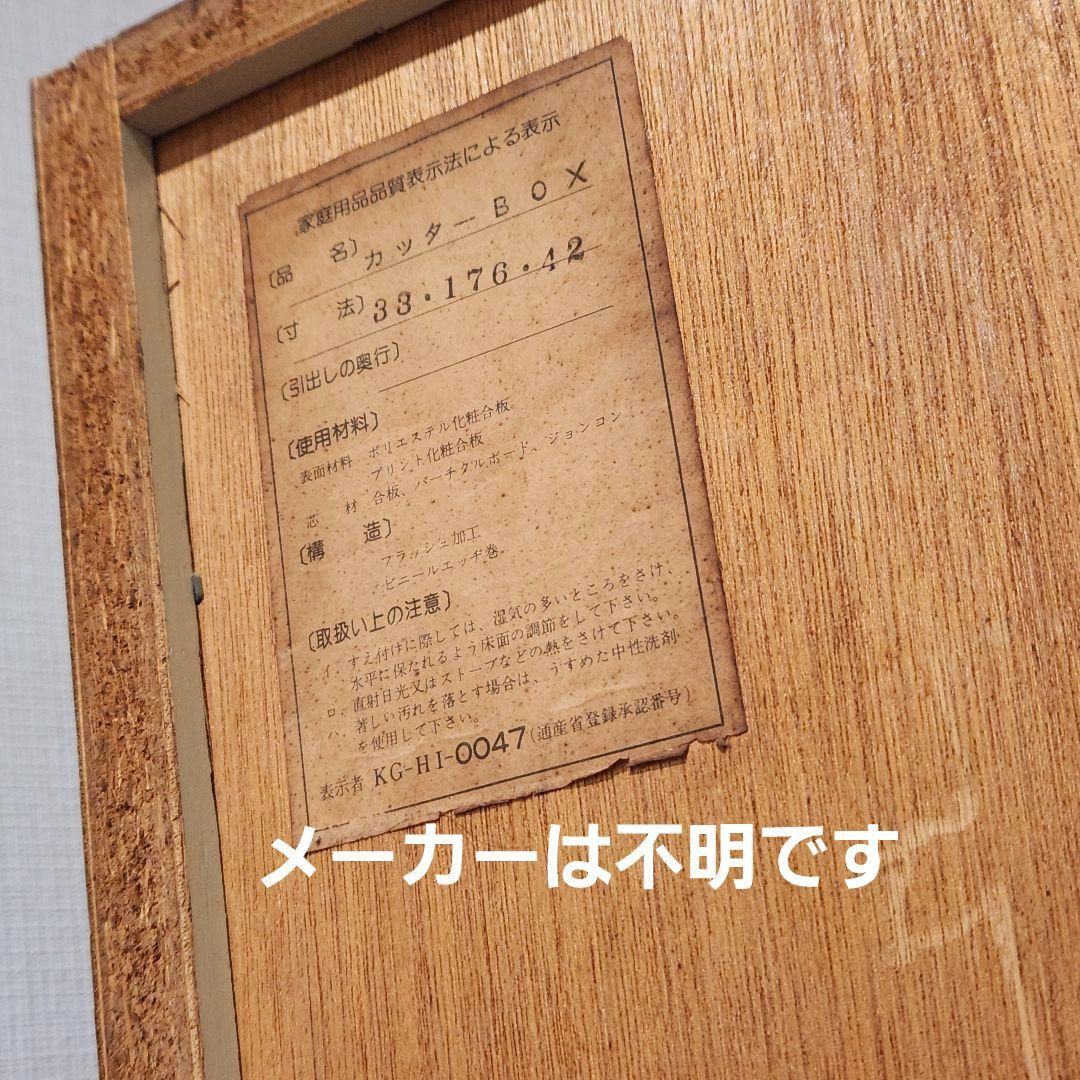 家庭用品品質表示法による表示
〔品　名〕カッターBOX
〔寸　法〕33・176・42
〔引出しの奥行〕
〔使用材料〕
表面材料 ポリエステル化粧合板
プリント化粧合板
芯　材 合板、パーチクルボード、ジョンコン
〔構　造〕
フラッシュ加工
ビニールエッヂ巻
〔取扱い上の注意〕
イ、すえ付けに際しては、湿気の多いところをさけ、
水平に保たれるよう床面の調節をして下さい。
ロ、直射日光又はストーブなどの熱をさけて下さい。
ハ、著しい汚れを落とす場合は、うすめた中性洗剤
を使用して下さい。
表示者 KG-HI-0047(通産省登録承認番号)
メーカーは不明です